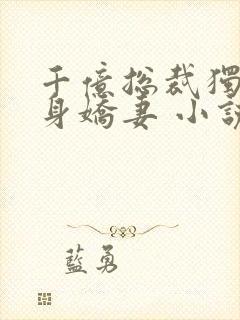 千億總裁獨
身嬌妻 小說
藍勇